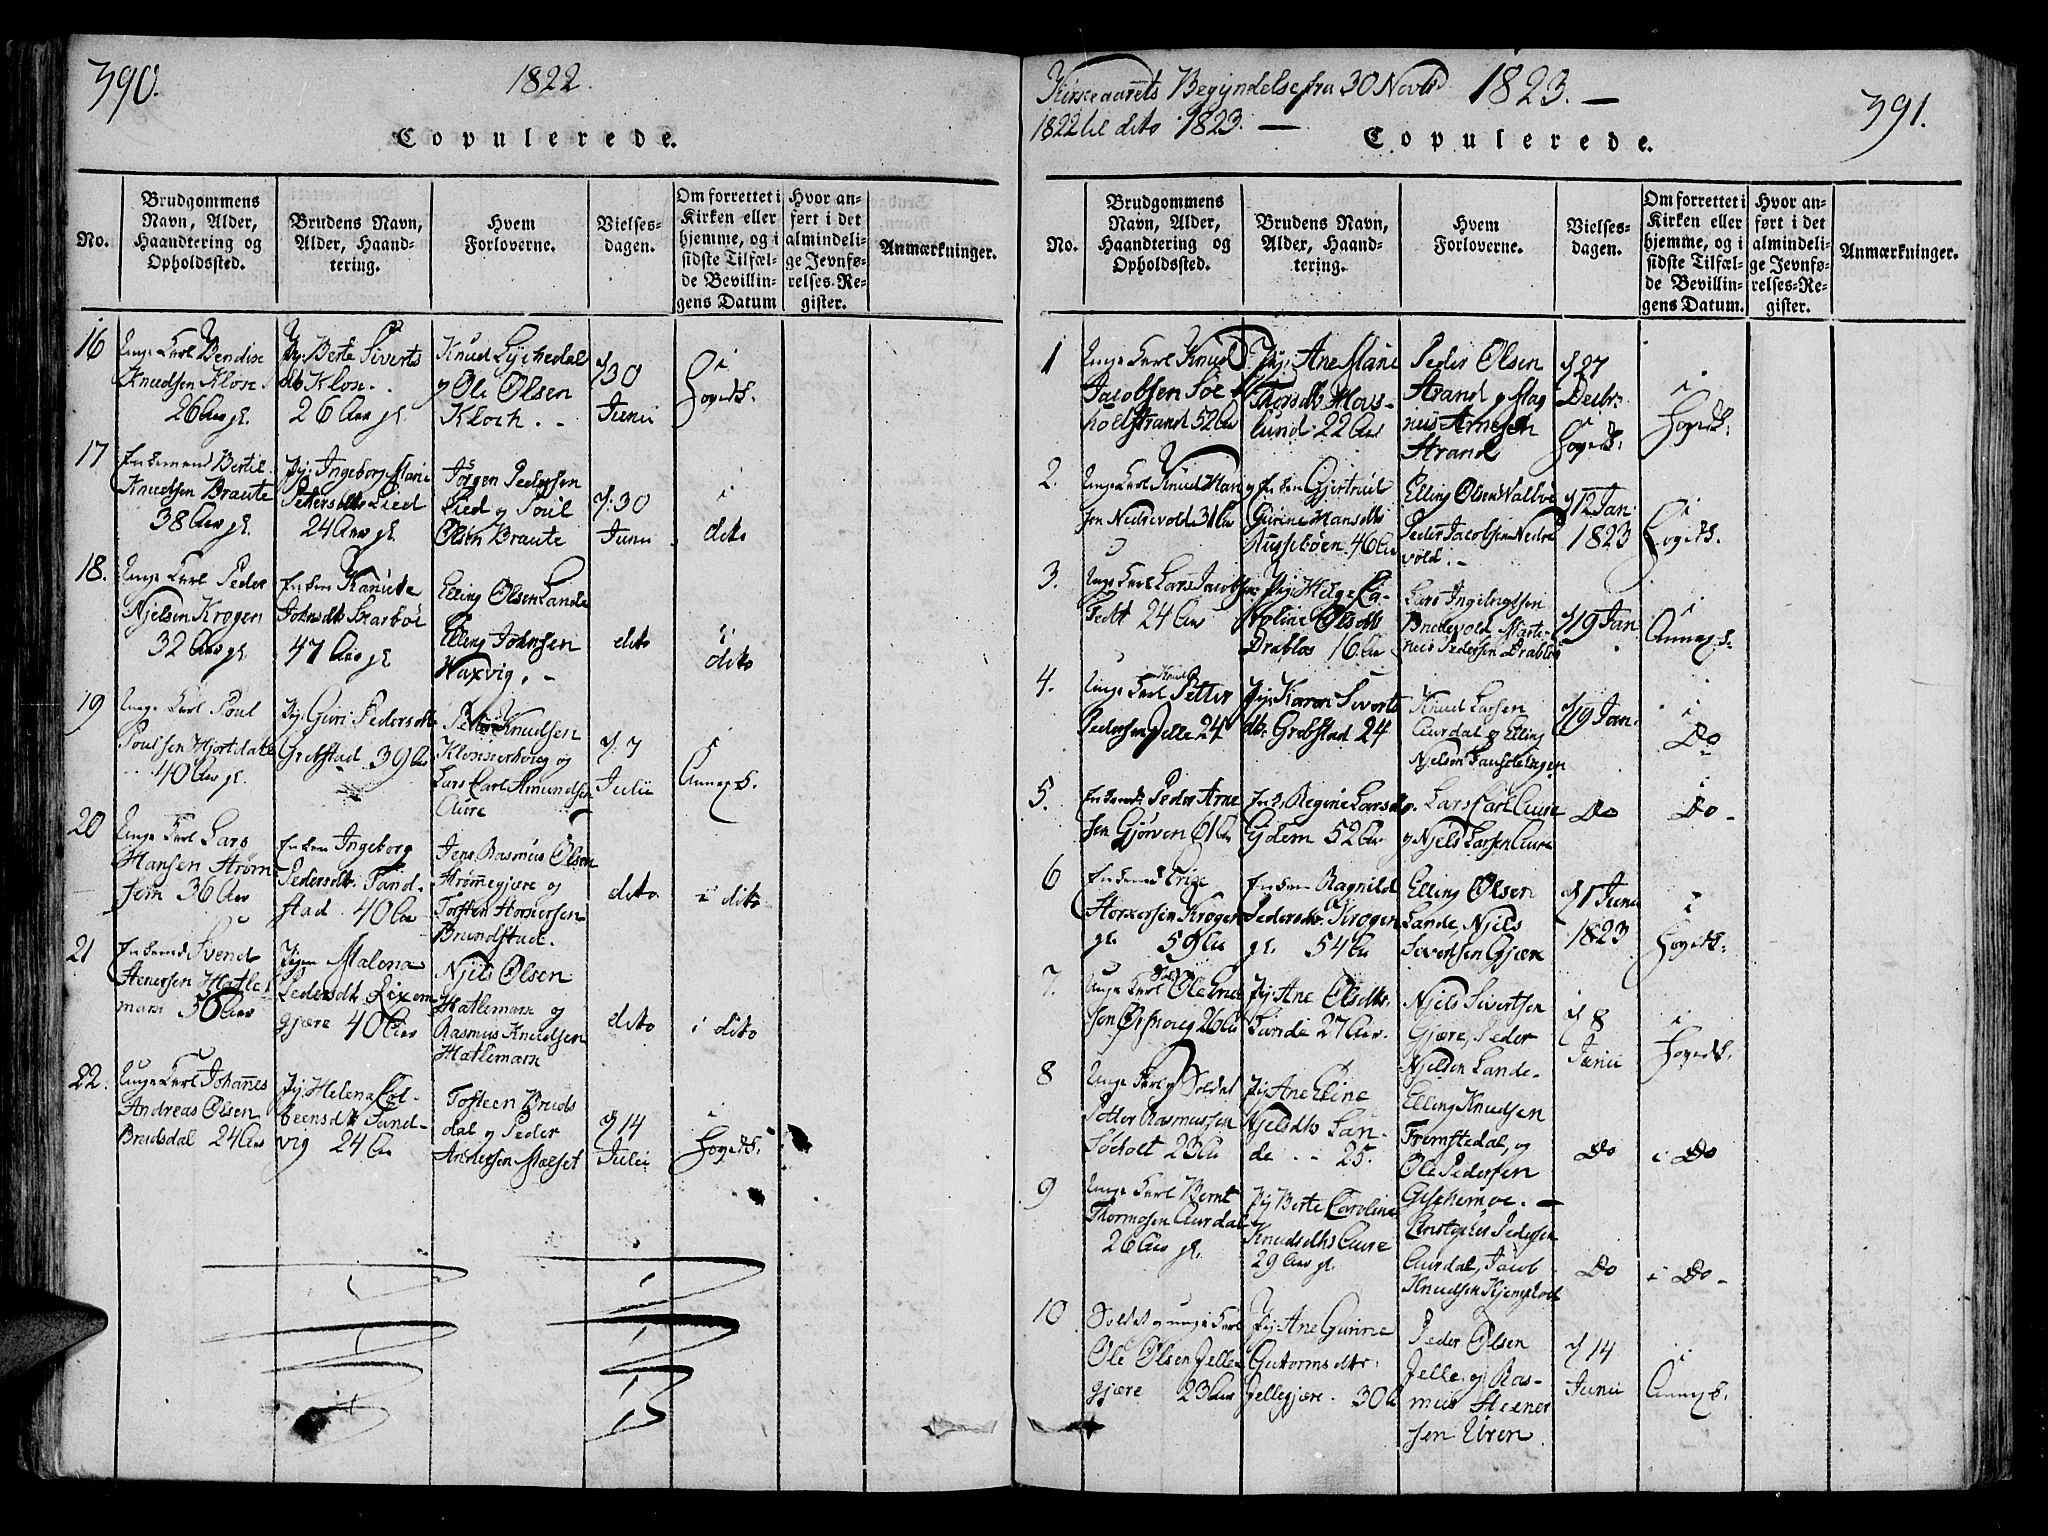 390.
1822.
Copulerede.
No.
Brudgommens Navn, Alder, Haandtering og Opholdssted.
Brudens Navn, Alder, Haandtering.
Hvem Forloverne.
Vielsesdagen.
Om forrettet i Kirken eller hjemme, og i sidste Tilfælde Bevillingens Datum
Hvor anført i det almindelige Jevnførelses-Register.
Anmærkninger.
16
Unge Karl Bendix
Knudsen Klox
26 Aar gl.
Pig: Berte Siverts
dtr Klox
26 Aar gl.
Knud Lychedal
og Ole Olsen
Kloch. -
d: 30
Junii
i
Hovedk.
17
Enkemand Bertil
Knudsen Braute
38 Aar gl.
Pig: Ingeborg Marie
Pedersdtr Lied
24 Aar gl.
Jørgen Pedersen
Lied og Poul
Olsen Braute
d: 30
Junii
i
dito
18.
Unge Karl Peder
Njelsen Krogen
32 Aar gl.
Enken Kanute
Johnsdtr
47 Aar gl.
Elling Olsen Lande
Elling Johnsen
Waxvig. -
dito
i
dito
19
Unge Karl Poul
Poulsen Hjortdale
40 Aar gl.
Pig. Guri Pedersdtr
Grebstad 39 Aar
Peder Knudsen
og
Lars Carl Amundsen
Aure
d: 7
Julii
i
Annexk.
20
Unge Karl Lars
Hansen Strøm
sem 36 Aar
Enken Ingeborg
Pedersdtr. Tand-
stad 40 Aar
Jens Rasmus Olsen
Strømmegjære og
Torsten
Brundstad.
dito
i dito
21
Enkemand Svend
Hatle-
mark 50 Aar
Pigen Malena
Pedersdtr
gjære 40 Aar
Njels Olsen
Hatlemark og
Rasmus Knudsen
Hatlemark
dito
i dito
22.
Unge Karl Johannes
Andreas Olsen
Brudsdal 24 Aar
Pig: Helena Col-
beensdtr Sand-
vig 24 Aar
Torsteen Bruds
dal og Peder
Andersen Mæset
d 14
Julii
i
Hovedk.
Kirkeaarets Begyndelse fra 30 Novbr
1822 til dito 1823. -
1823. -
391.
Copulerede.
No.
Brudgommens Navn, Alder, Haandtering og Opholdssted.
Brudens Navn, Alder, Haandtering.
Hvem Forloverne.
Vielsesdagen.
Om forrettet i Kirken eller hjemme, og i sidste Tilfælde Bevillingens Datum.
Hvor anført i det almindelige Jevnførelses-Register.
Anmærkninger.
1
Unge Karl Knud
Jacobsen Søe
holtstrand 52 Aar
Pig: Ane Marie
lund 22 Aar
Peder Olsen
Strand og Mag
nus Arnesen
Strand
d 27
Decbr.
i
Hovedk.
2.
Unge Karl Knud Han
sen Nedrevold 31 Aar
Enken Gjertrud
Gurine Hansdtr
46 Aar
Elling Olsen
Peder Jacobsen Nedre
vold. -
d 12 Jan
1823
i
Hovedk.
3.
Unge Karl Lars Jacobsen
Tedt 24 Aar
Pig Helge Ca-
roline Olsdtr
Drabløs 16 Aar
Lars Ingebrigtsen
Brudevold, Marte-
nus Pedersen Drabløs
d 19 Jan
i
Annexk.
4.
Unge Karl Petter
Pedersen Jelle 24
Pig Karen Siverts
dtr Grebstad 24
Knud Larsen
Aurdal og Elling
Njelsen
d 19 Jan
i
Do
5.
Enkemd. Peder Arne
sen Gjørven 61 Aar
Enk. Regine Larsdtr
Gjdem 52 Aar
Lars Carl Aure
og Njels Larsen Aure
Do
i
Do
6
Enkemand
Krogen
gl. 59 Aar
Enken Ragnild
Pedersdtr. Krogen
gl. 54 Aar
Elling Olsen
Lande, Njels
Sivertsen Gjære
d 1 Junii
1823
i
Hovedk.
7.
Unge Karl Ole Knud
sen Ørsnoeg 26 Aar
Pig: Ane Olsdtr.
Lande 27 Aar.
Njels Sivertsen
Gjære, Peder
Njelsen Lande
d 8
Junii
i
Hovedk.
8
Unge Karl og Soldat
Petter Rasmussen
Søeholt 23 Aar
Pig Ane Eline
Njelsdtr Lan-
de 25.
Elling Knudsen
Fremstedal, og
Ole Pedersen
Giskemoe. -
Do
i Do
9
Unge Karl Bernt
Thormosen Aurdal
26 Aar gl.
Pig Berte Caroline
Knudsdtr Aure
29 Aar gl.
Christopher Pedersen
Aurdal, Jacob
Knudsen
Do
i Do -
10
Soldat og unge Karl
Ole Olsen Jelle
gjære 23 Aar
Pig. Ane Gurine
Gutormsdtr:
Jellegjære. 30 Aar
Peder Olsen
Jelle, og Ras-
mus Steener
sen Uren.
d 14
Junii
i
Annexk.